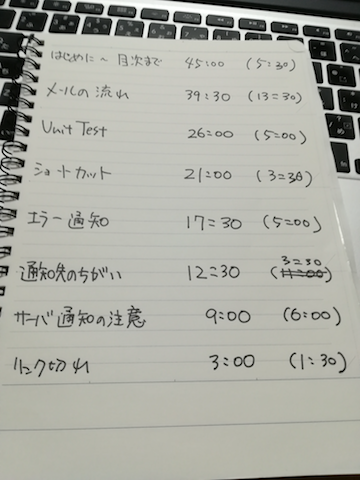 はじめに～目次まで 45:00 (5:30)
メールの流れ 39:30 (13:30)
Unit Test 26:00 (5:00)
ショートカット 21:00 (3:30)
エラー通知 17:30 (5:00)
通知先のちがい 12:30 (11:00) 3:30
サーバ通知の注意 9:00 (6:00)
リンク切れ 3:00 (1:30)